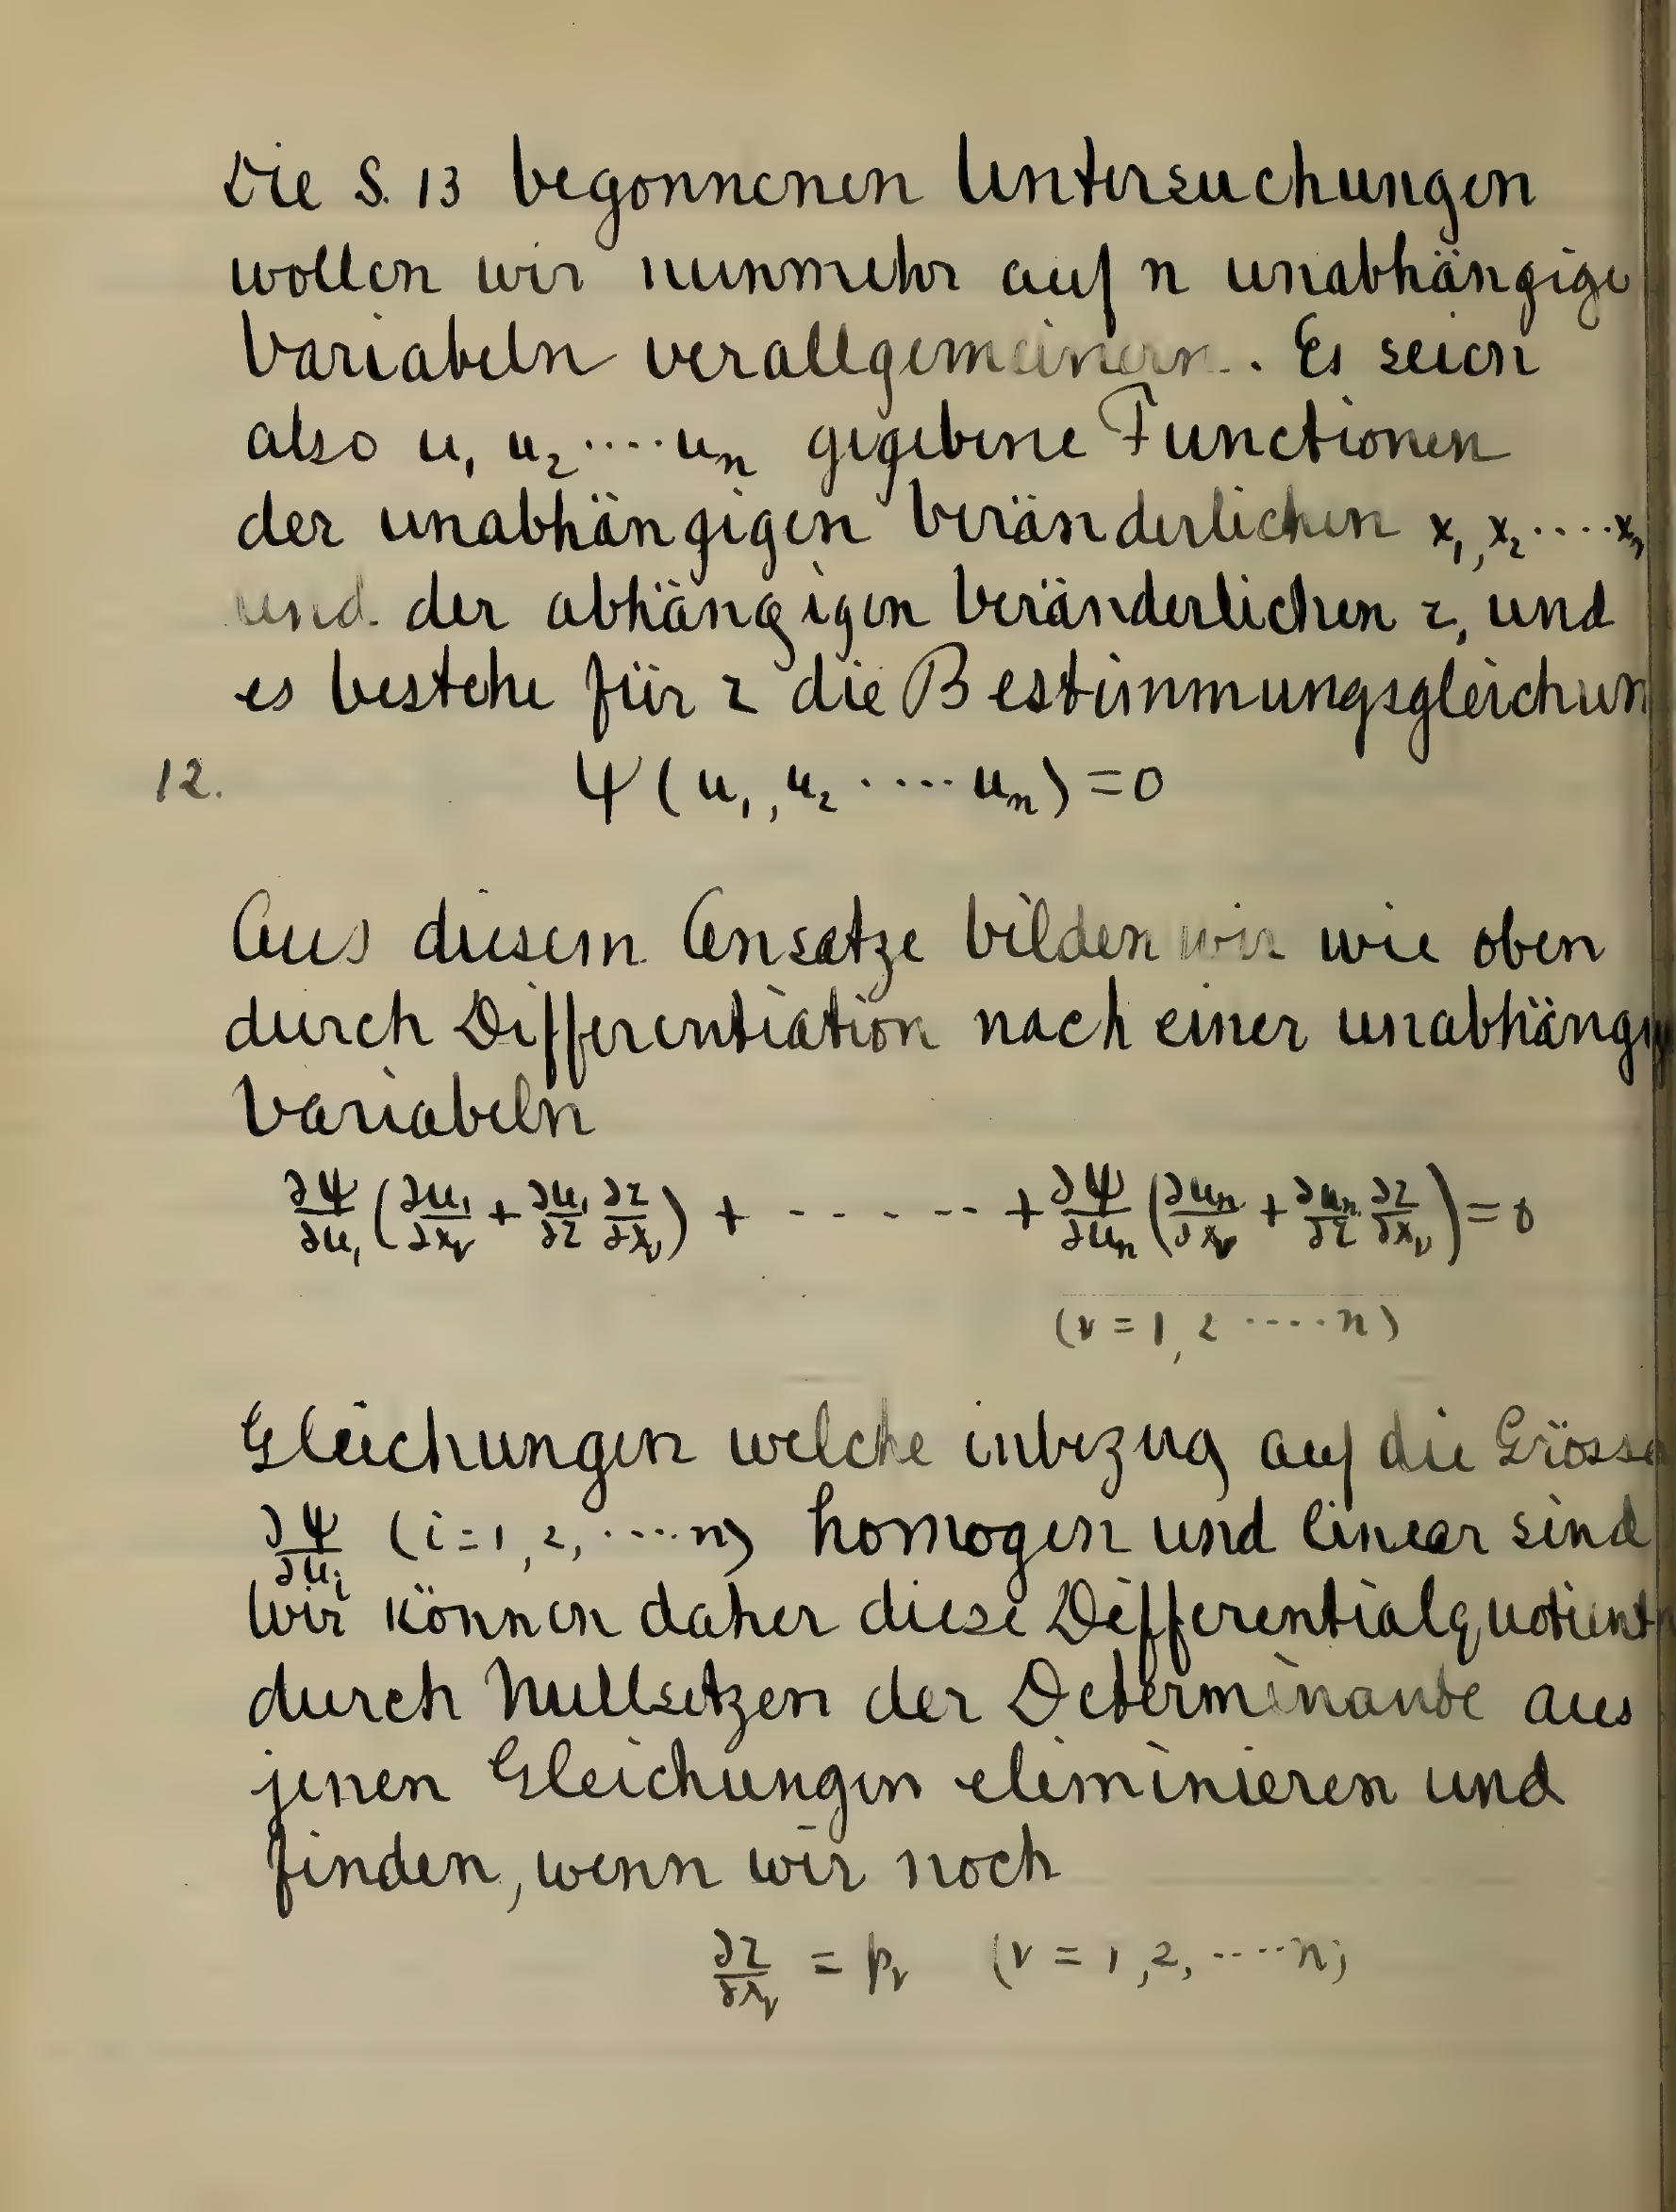 Die S. 13 begonnenen Untersuchungen
wollen wir nunmehr auf n unabhängige
Variabeln verallgemeinern. Es seien
also u₁ u₂ ····· uₙ gegebene Functionen
der unabhängigen Veränderlichen x₁, x₂ ····· xₙ
und der abhängigen Veränderlichen z, und
es bestehe für z die Bestimmungsgleichun
12. Ψ(u₁, u₂ ····· uₙ) = 0
Aus diesem Ansatze bilden wir wie oben
durch Differentiation nach einer unabhängi
Variabeln
∂Ψ/∂u₁ (∂u₁/∂xᵥ + ∂u₁/∂z ∂z/∂xᵥ) + - - - - - - + ∂Ψ/∂uₙ (∂uₙ/∂xᵥ + ∂uₙ/∂z ∂z/∂xᵥ) = 0
(ν = 1, 2 ····· n)
Gleichungen welche inbezug auf die Grösse
∂Ψ/∂uᵢ (i = 1, 2, ····· n) homogen und linear sind
Wir können daher diese Differentialquotient
durch Nullsetzen der Determinante aus
jenen Gleichungen eliminieren und
finden, wenn wir noch
∂z/∂xᵥ = pᵥ (ν = 1, 2, ····· n)